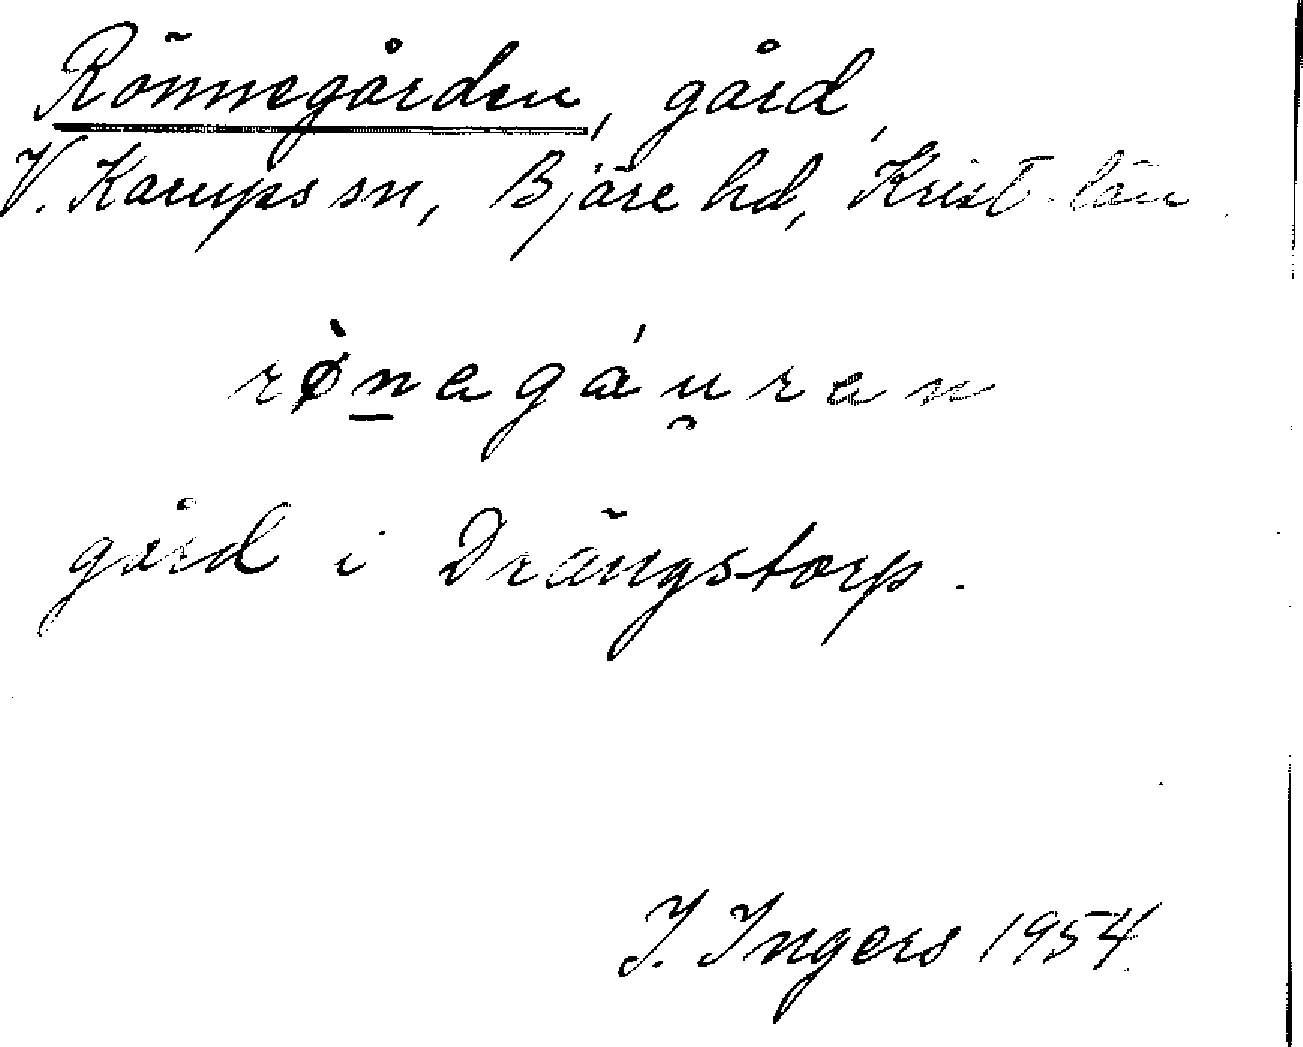 Rönnegården, gård,
V. Karups sn, Bjäre hd, Krist. län.
rø̀n̲egáu̯ran
gård i Drängstorp.
I. Ingers 1954.